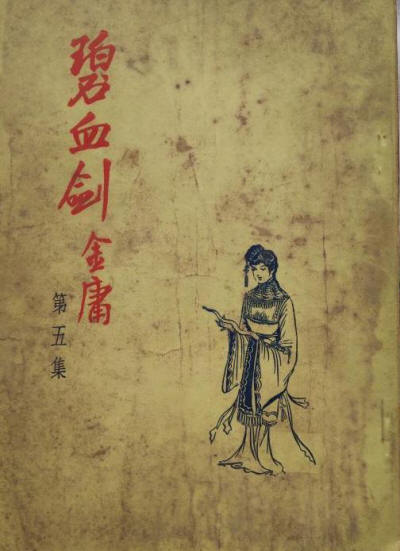 碧血剑
金庸
第五集